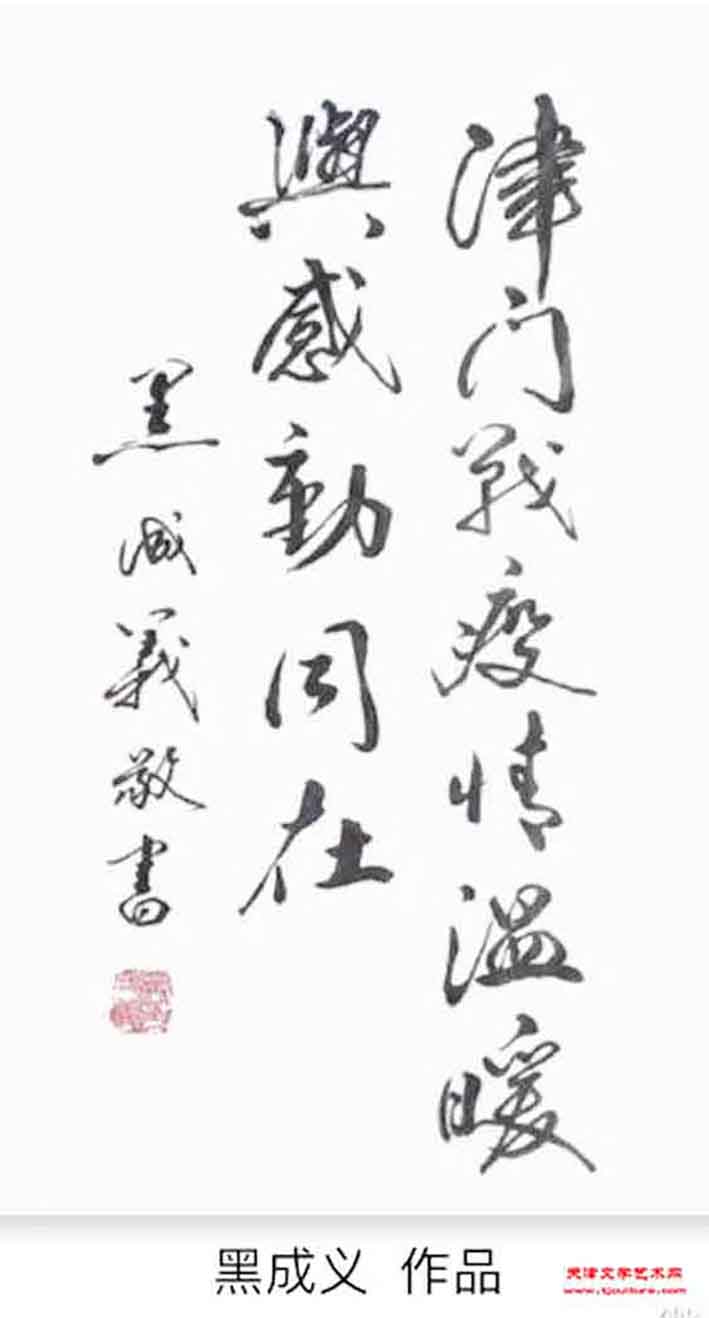 津门战疫情温暖
與感動同在
黑成義敬書
黑成义 作品
天津文学艺术网
www.tjculture.com